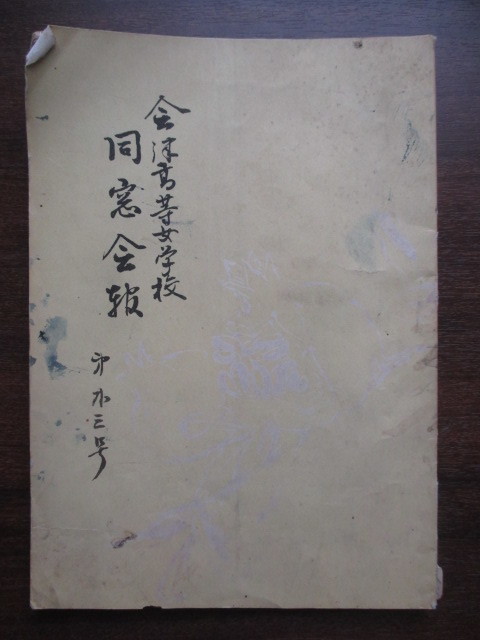 会津高等女学校
同窓会報
第廿三号